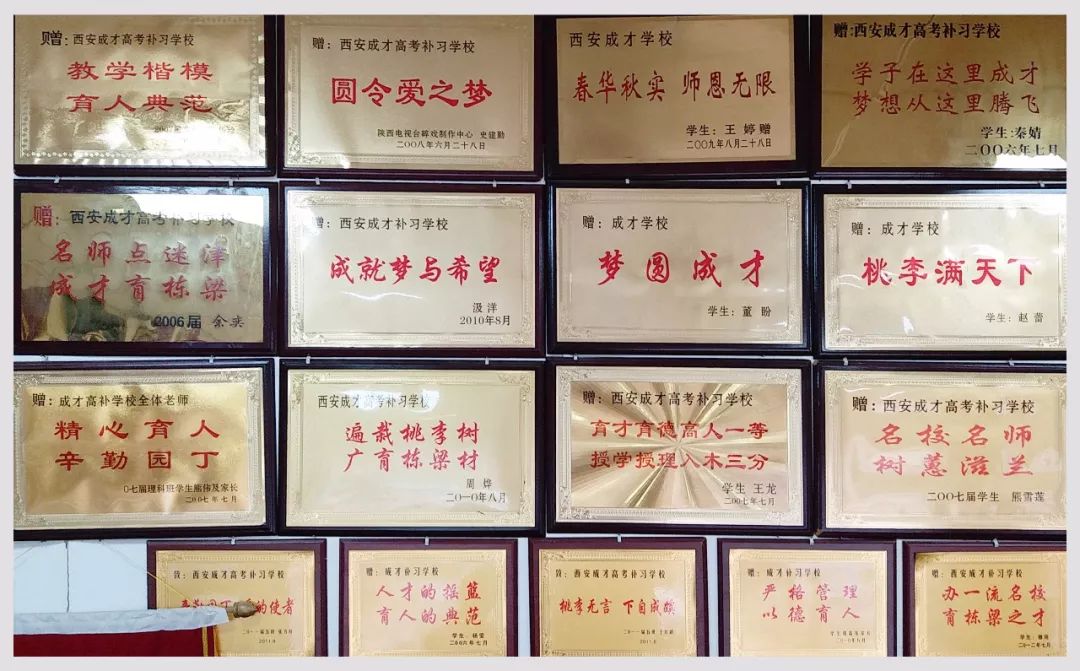 赠:西安成才高考补习学校
教学楷模
育人典范
赠:西安成才高考补习学校
圆令爱之梦
陕西电视台碎戏制作中心 史建勤
二〇〇八年六月二十八日
西安成才学校
春华秋实 师恩无限
学生:王 婷赠
二〇〇九年八月二十八日
赠:西安成才高考补习学校
学子在这里成才
梦想从这里腾飞
学生:秦婧
二〇〇六年七月
赠:西安成才高考补习学校
名师点迷津
成才育栋梁
2006届 余奕
赠:西安成才补习学校
成就梦与希望
汲洋
2010年8月
赠:成才学校
梦圆成才
学生:董 盼
赠:成才学校
桃李满天下
学生:赵 蕾
赠:成才高补学校全体老师
精心育人
辛勤园丁
〇七届理科班学生熊伟及家长
二〇〇七年七月
西安成才高考补习学校
遍栽桃李树
广育栋梁材
周 烨
二〇一〇年八月
赠:西安成才高考补习学校
育才育德高人一等
授学授理入木三分
学生 王龙
二〇〇七年七月
赠:西安成才高考补习学校
名校名师
树蕙滋兰
二〇〇七届学生 熊雪莲
致:西安成才高考补习学校
的使者
2011.6
赠:成才补习学校
人才的摇篮
育人的典范
学生:杨雯
二〇〇六年七月
致:西安成才高考补习学校
桃李无言 下自成蹊
2011.6
赠:成才补习学校
严格管理
以德育人
赠:西安成才高考补习学校
办一流名校
育栋梁之才
二〇一二年七月